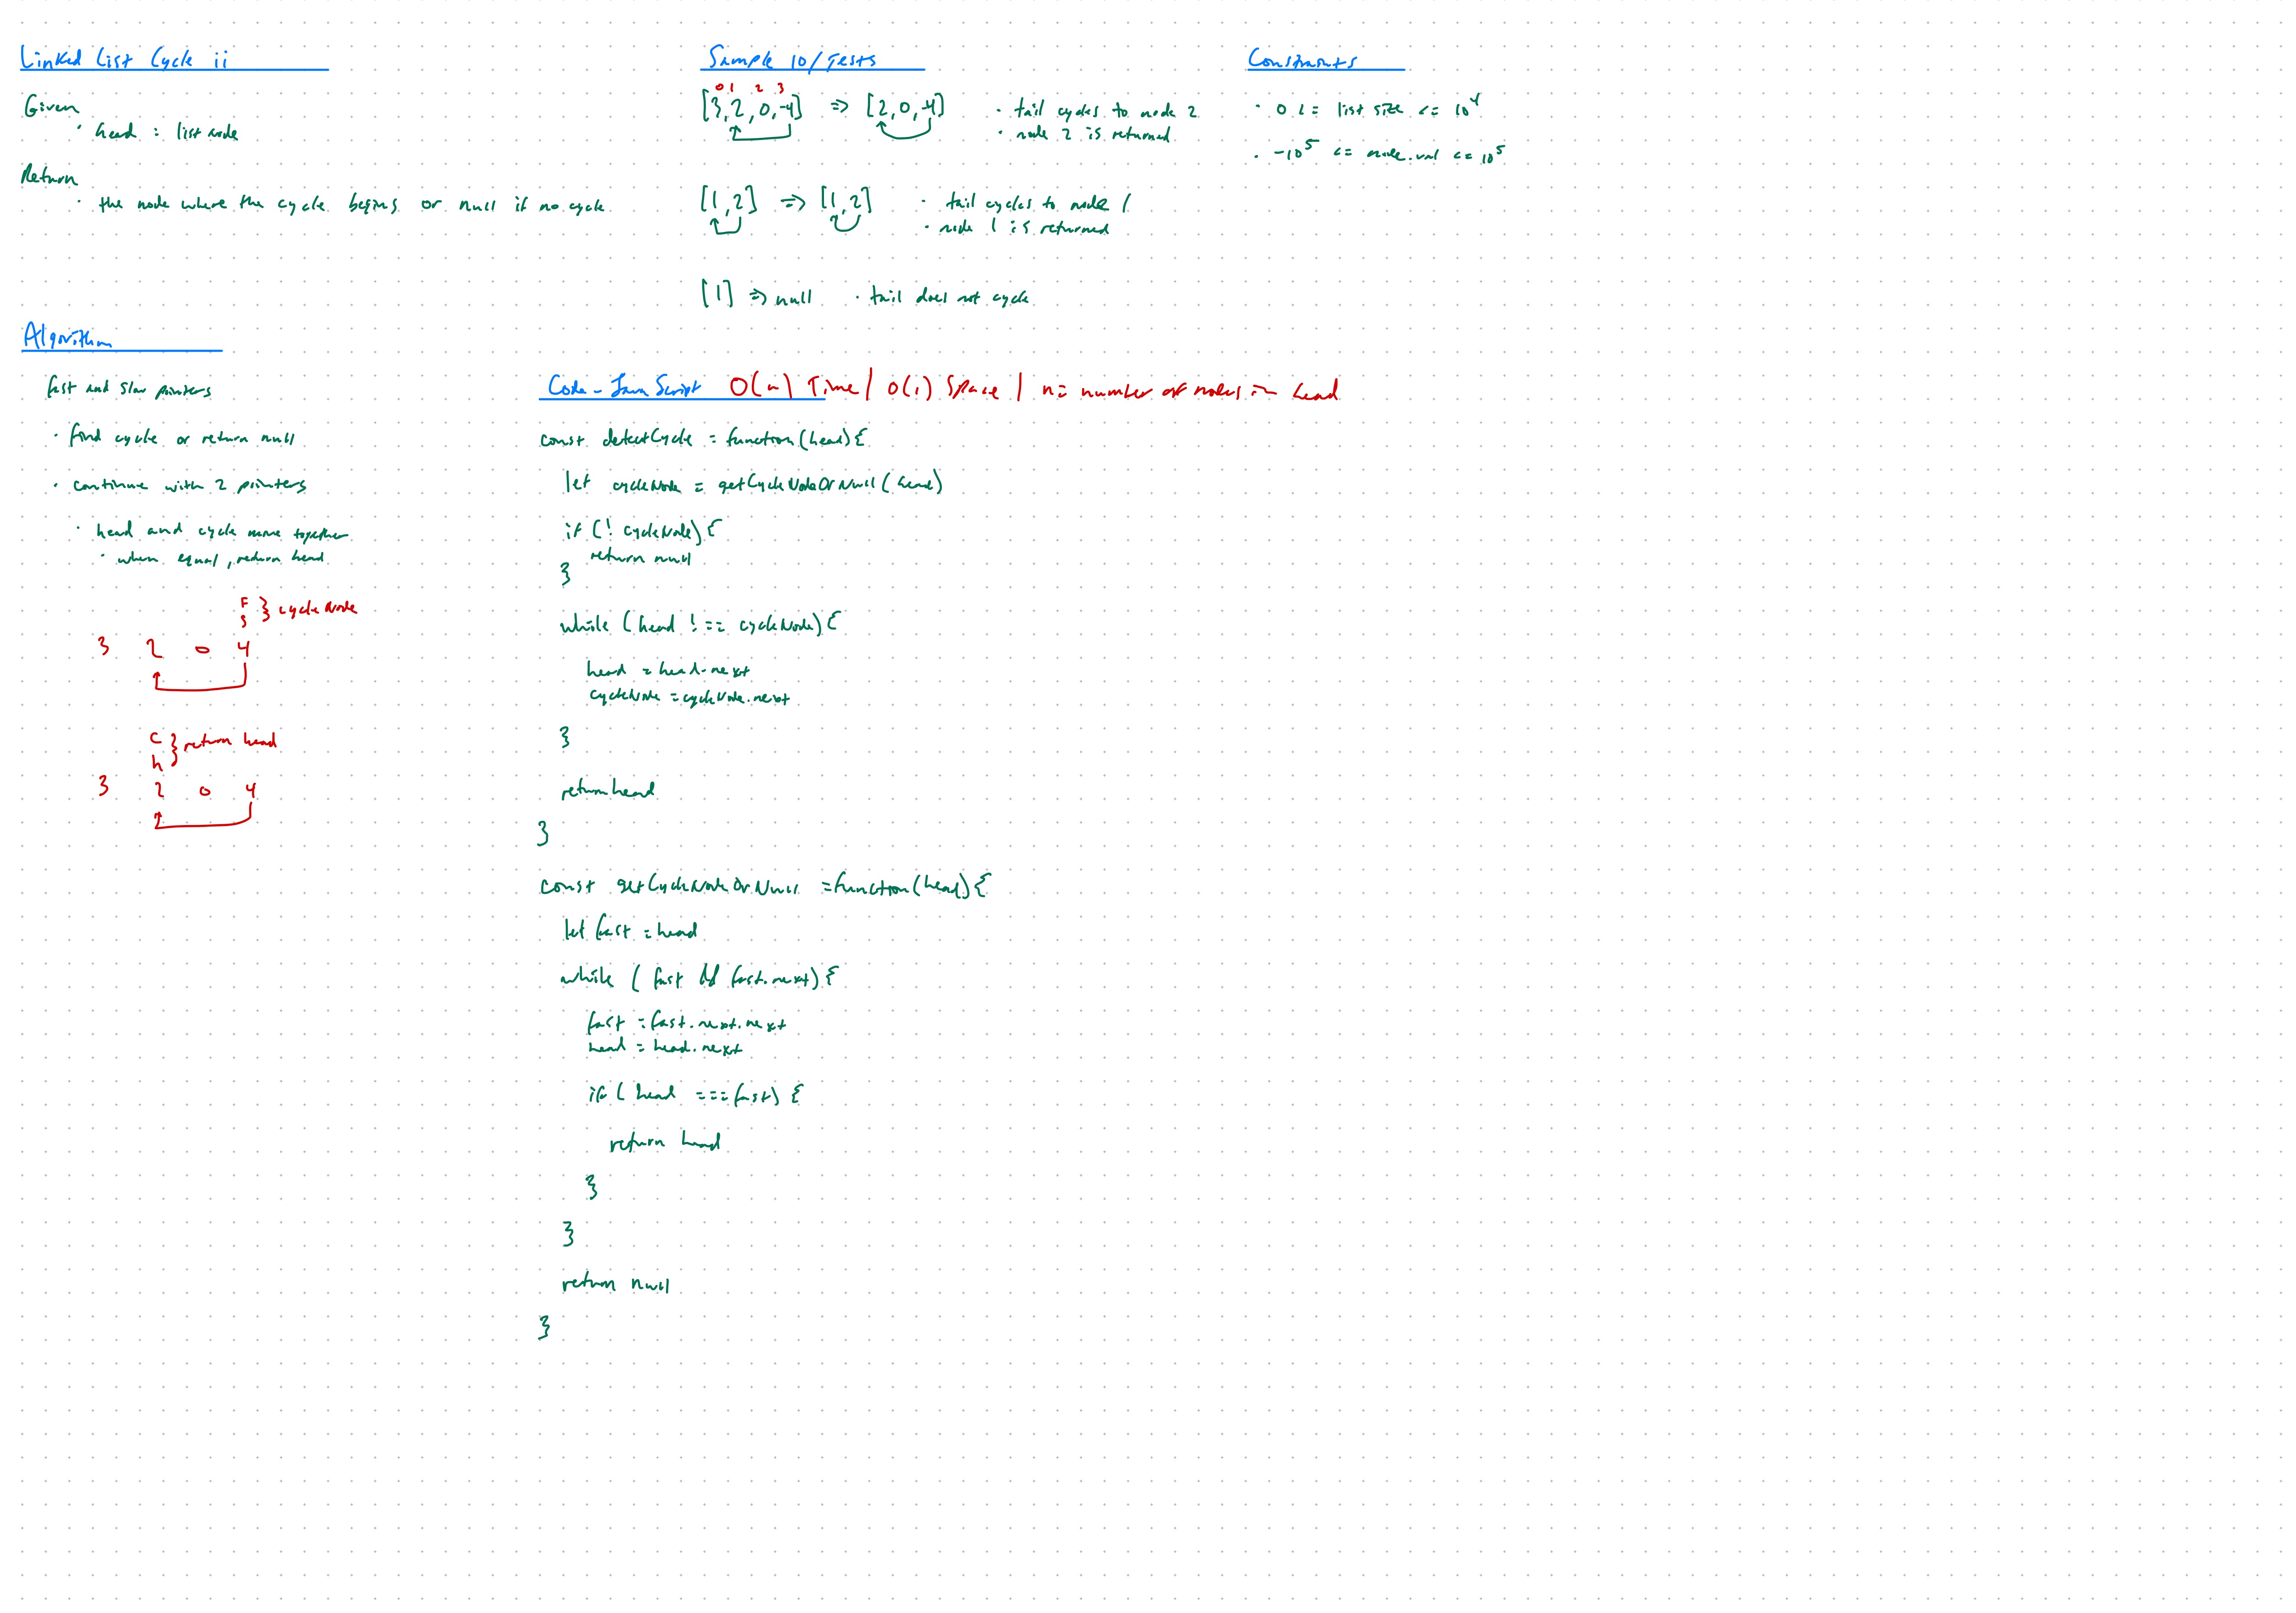 Linked List Cycle ii
Given
· head : list node
Return
· the node where the cycle begins or null if no cycle
Sample IO/Tests
0 1 2 3
[3, 2, 0, -4] => [2, 0, -4]
· tail cycles to node 2
· node 2 is returned
[1, 2] => [1, 2]
· tail cycles to node 1
· node 1 is returned
[1] => null · tail does not cycle
Constraints
· 0 <= list size <= 10^4
· -10^5 <= node.val <= 10^5
Algorithm
fast and slow pointers
· find cycle or return null
· continue with 2 pointers
· head and cycle move together
· when equal, return head
F
S } cycleNode
3 2 0 4
C
h } return head
3 2 0 4
Code - JavaScript O(n) Time | O(1) Space | n = number of nodes in head
const detectCycle = function(head){
let cycleNode = getCycleNodeOrNull(head)
if (! cycleNode){
return null
}
while (head !== cycleNode){
head = head.next
cycleNode = cycleNode.next
}
return head
}
const getCycleNodeOrNull = function(head){
let fast = head
while (fast && fast.next){
fast = fast.next.next
head = head.next
if (head === fast) {
return head
}
}
return null
}